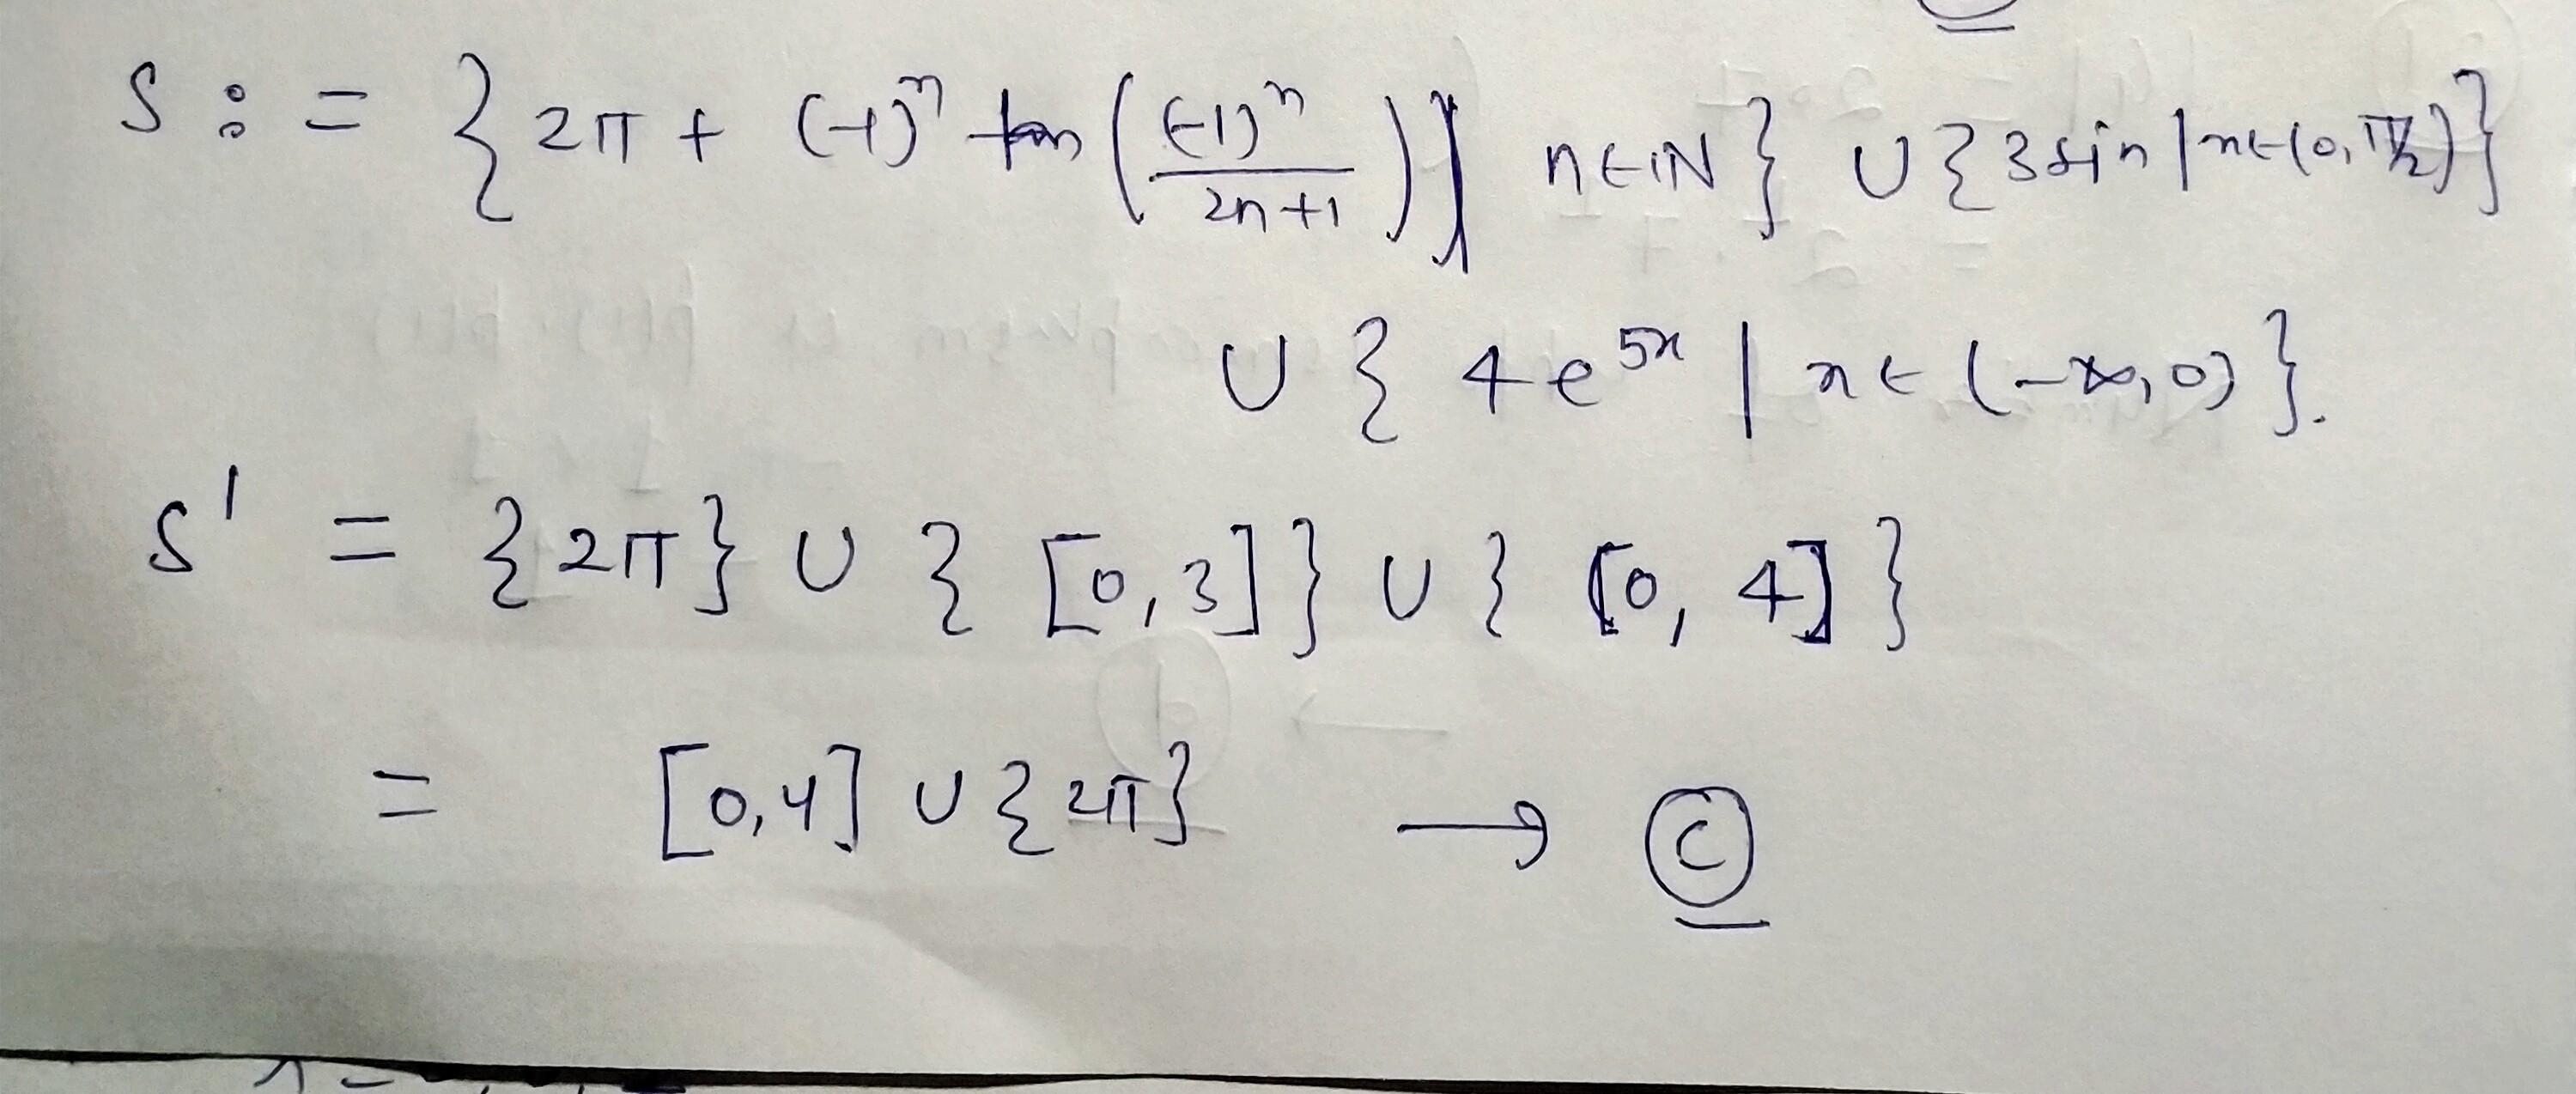 S := { 2π + (-1)ⁿ tan ( (-1)ⁿ / 2n+1 ) | n∈ℕ } ∪ { 3 sin | x∈(0, π/2) }
∪ { 4 e^{5x} | x ∈ (-∞, 0) }.
S' = { 2π } ∪ { [0, 3] } ∪ { [0, 4] }
= [0, 4] ∪ { 2π } → (C)